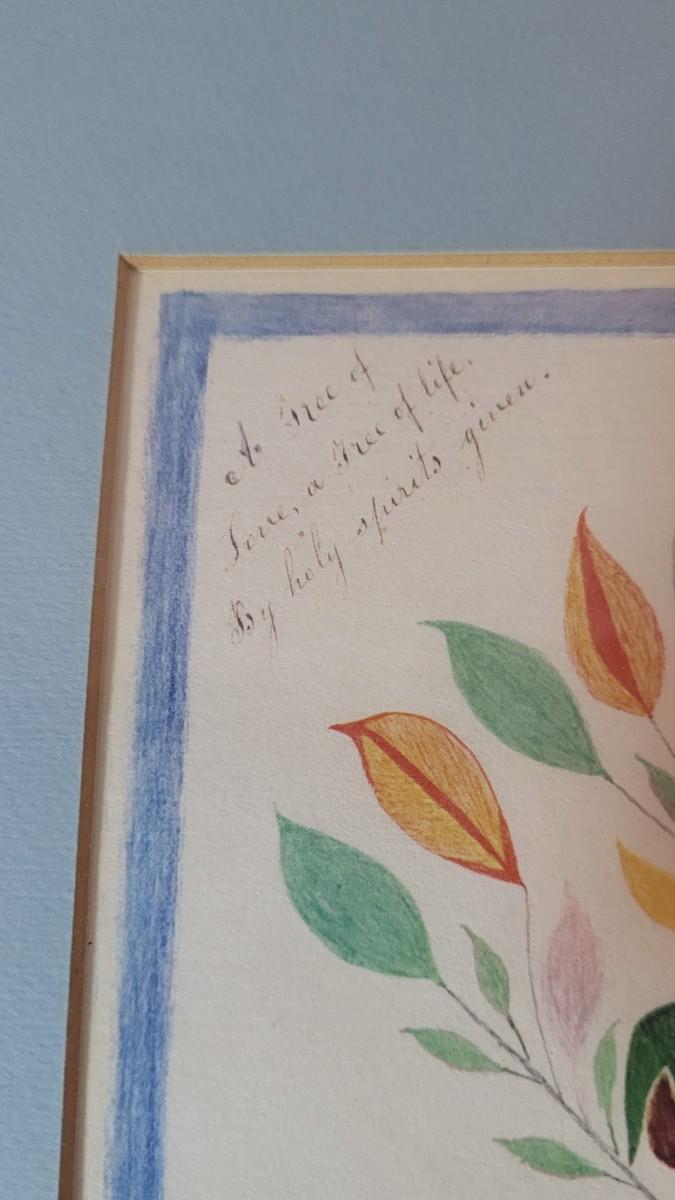 A Tree of
Love, a Tree of life.
By holy spirits given.